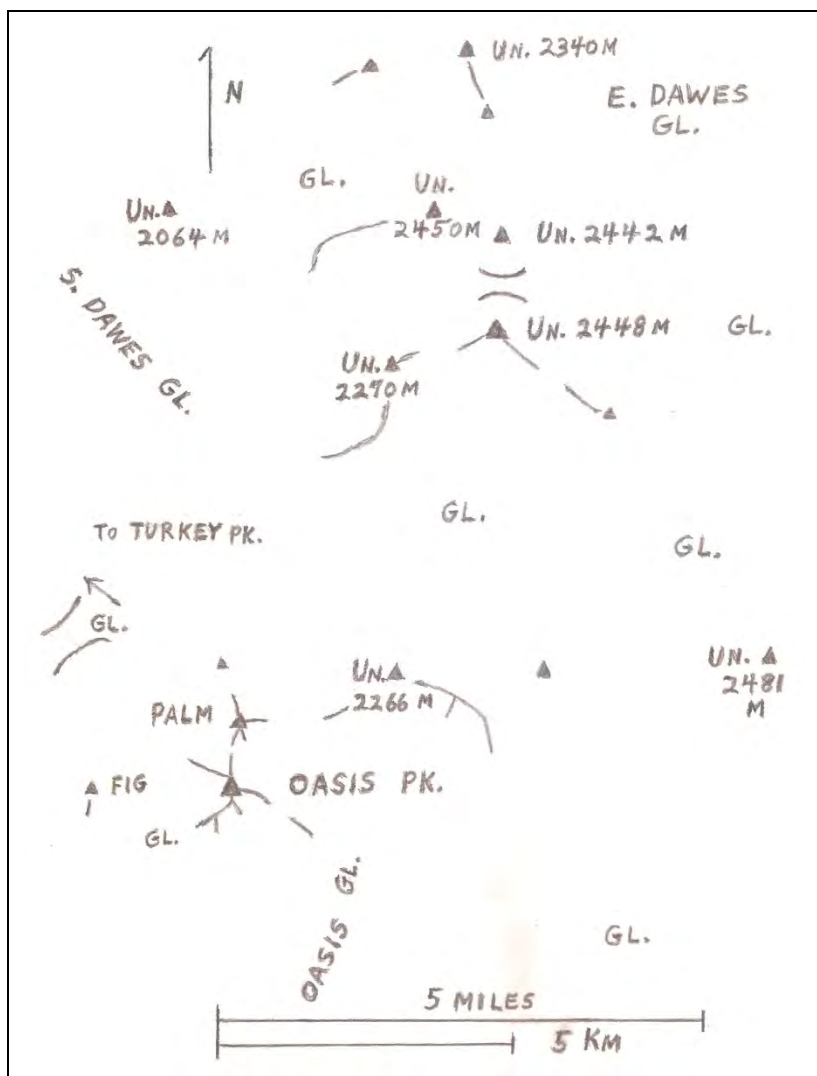 UN. 2340M
N
E. DAWES
GL.
GL.
UN.
2450M
UN.
2064M
UN. 2442M
S. DAWES GL.
UN. 2448M
GL.
UN.
2270M
GL.
TO TURKEY PK.
GL.
GL.
UN.
2266M
UN.
2481
M
PALM
FIG
OASIS PK.
GL.
OASIS GL.
GL.
5 MILES
5 KM